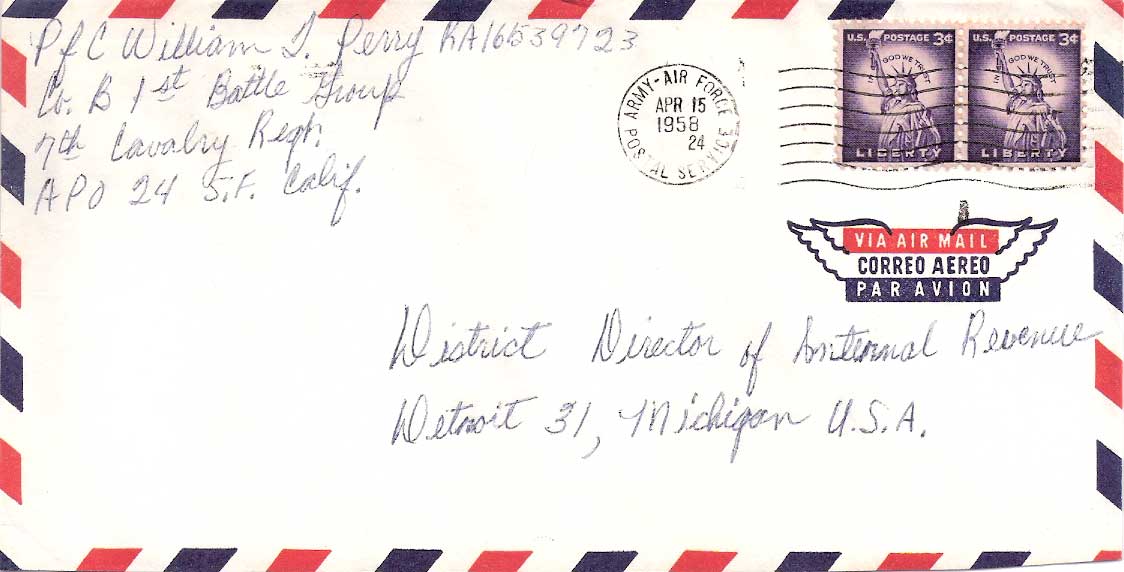 Pfc William L. Perry RA16539723
Co. B 1st Battle Group
7th Cavalry Regt.
APO 24 S.F. Calif.
ARMY-AIR FORCE
POSTAL SERVICE
APR 15
1958
24
U.S. POSTAGE 3¢
IN GOD WE TRUST
LIBERTY
U.S. POSTAGE 3¢
IN GOD WE TRUST
LIBERTY
VIA AIR MAIL
CORREO AEREO
PAR AVION
District Director of Internal Revenue
Detroit 31, Michigan U.S.A.